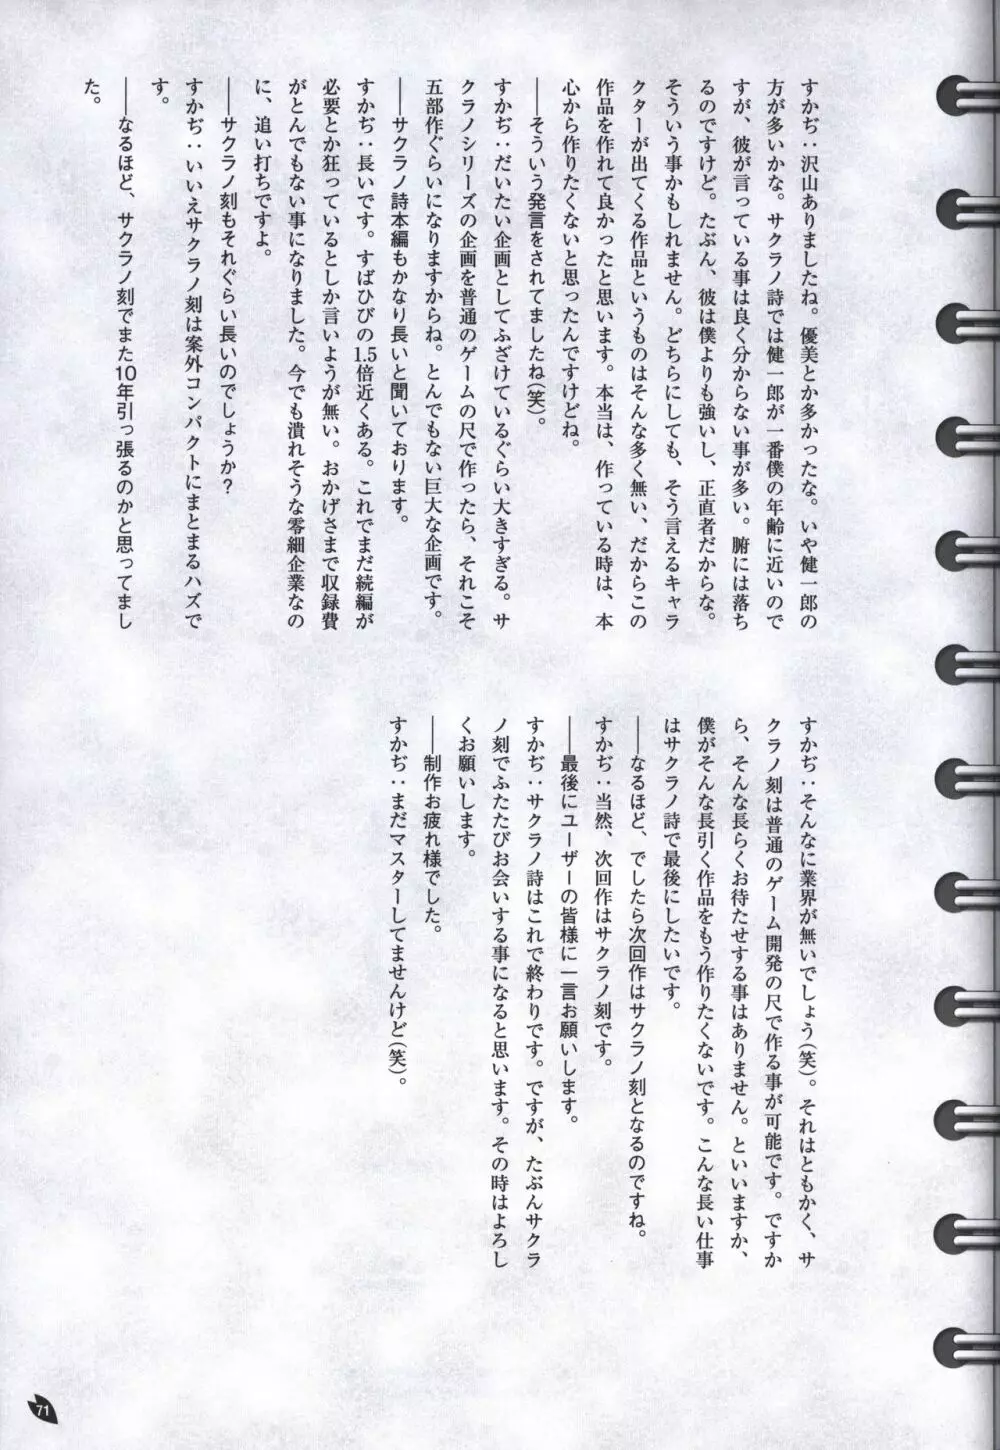 すかぢ：沢山ありましたね。優美とか多かったな。いや健一郎の
方が多いかな。サクラノ詩では健一郎が一番僕の年齢に近いので
すが、彼が言っている事は良く分からない事が多い。腑には落ち
るのですけど。たぶん、彼は僕よりも強いし、正直者だからな。
そういう事かもしれません。どちらにしても、そう言えるキャラ
クターが出てくる作品というものはそんな多く無い、だからこの
作品を作れて良かったと思います。本当は、作っている時は、本
心から作りたくないと思ったんですけどね。
――そういう発言をされてましたね(笑)。
すかぢ：だいたい企画としてふざけているぐらい大きすぎる。サ
クラノシリーズの企画を普通のゲームの尺で作ったら、それこそ
五部作ぐらいになりますからね。とんでもない巨大な企画です。
――サクラノ詩本編もかなり長いと聞いております。
すかぢ：長いです。すばひびの1.5倍近くある。これでまだ続編が
必要とか狂っているとしか言いようが無い。おかげさまで収録費
がとんでもない事になりました。今でも潰れそうな零細企業なの
に、追い打ちですよ。
――サクラノ刻もそれぐらい長いのでしょうか？
すかぢ：いいえサクラノ刻は案外コンパクトにまとまるハズで
す。
――なるほど、サクラノ刻でまた10年引っ張るのかと思ってまし
た。
すかぢ：そんなに業界が無いでしょう(笑)。それはともかく、サ
クラノ刻は普通のゲーム開発の尺で作る事が可能です。ですか
ら、そんな長らくお待たせする事はありません。といいますか、
僕がそんな長引く作品をもう作りたくないです。こんな長い仕事
はサクラノ詩で最後にしたいです。
――なるほど、でしたら次回作はサクラノ刻となるのですね。
すかぢ：当然、次回作はサクラノ刻です。
――最後にユーザーの皆様に一言お願いします。
すかぢ：サクラノ詩はこれで終わりです。ですが、たぶんサクラ
ノ刻でふたたびお会いする事になると思います。その時はよろし
くお願いします。
――制作お疲れ様でした。
すかぢ：まだマスターしてませんけど(笑)。
71